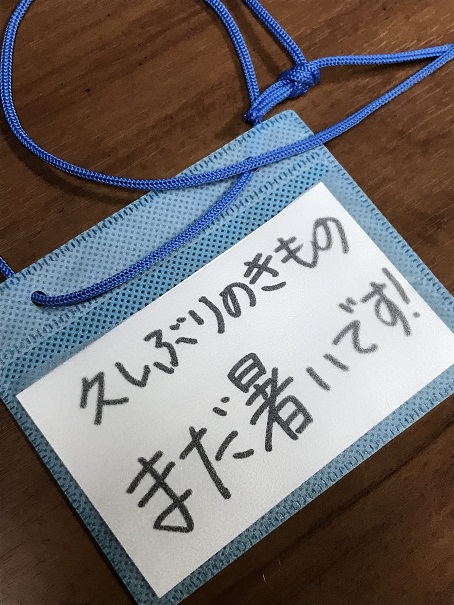 久しぶりのきもの
まだ暑いです!